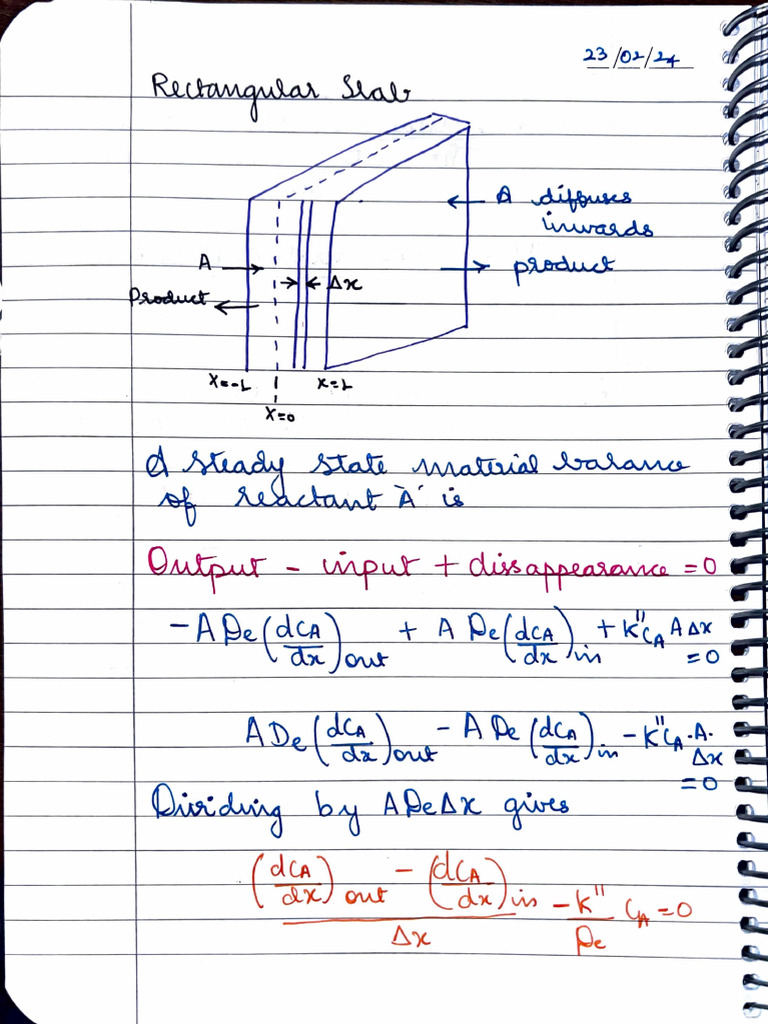 23/02/24
Rectangular Slab
A diffuses
inwards
A
product
Δx
Product
x=-L
x=L
x=0
A steady state material balance
of reactant 'A' is
Output - input + dissappearance = 0
-A De (dCA/dx)out + A De (dCA/dx)in + K'' CA A Δx
= 0
A De (dCA/dx)out - A De (dCA/dx)in - K'' CA . A .
Δx
= 0
Dividing by A De Δx gives
((dCA/dx)out - (dCA/dx)in)/Δx - K''/De CA = 0